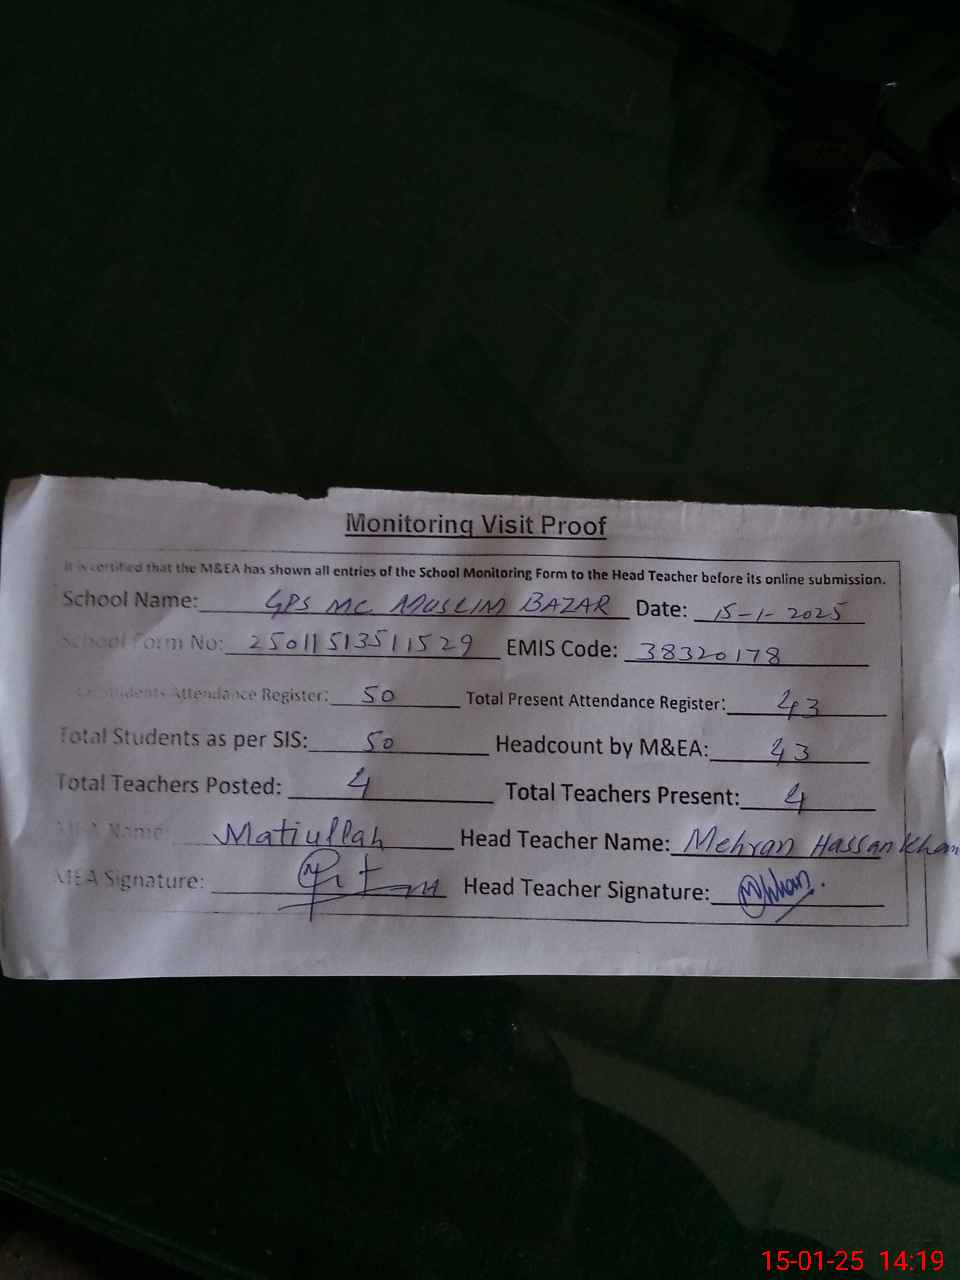 Monitoring Visit Proof
It is certified that the M&EA has shown all entries of the School Monitoring Form to the Head Teacher before its online submission.
School Name: GPS MC MUSLIM BAZAR Date: 15-1-2025
School Form No: 25011513511529 EMIS Code: 38320178
Students Attendance Register: 50 Total Present Attendance Register: 43
Total Students as per SIS: 50 Headcount by M&EA: 43
Total Teachers Posted: 4 Total Teachers Present: 4
MEA Name: Matiullah Head Teacher Name: Mehran Hassan Khan
MEA Signature: Head Teacher Signature:
15-01-25 14:19